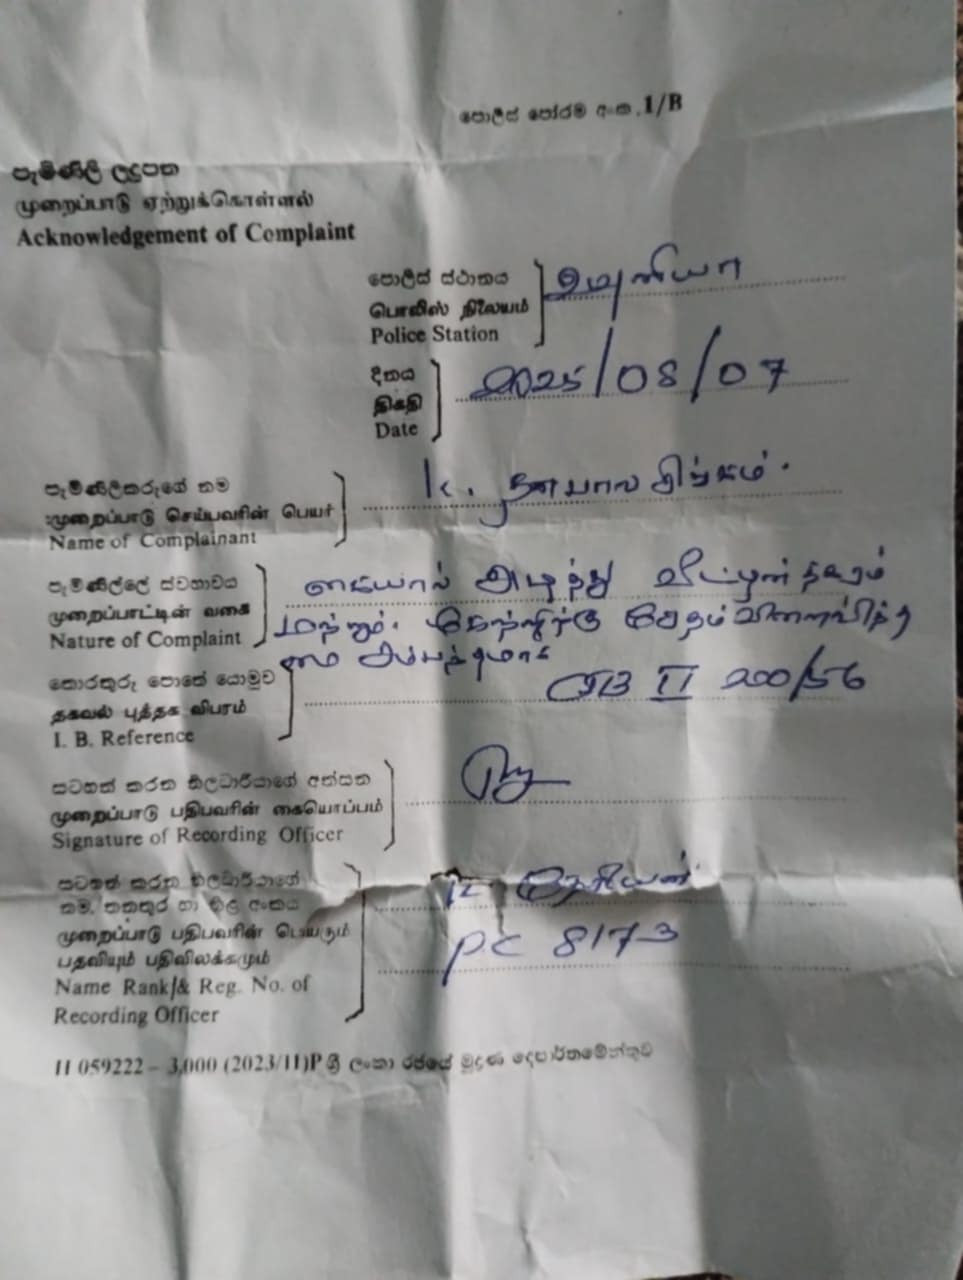 පොලිස් පෝරම අංක .1/B
පැමිණිලි ලදුපත
முறைப்பாடு ஏற்றுக்கொள்ளல்
Acknowledgement of Complaint
පොලිස් ස්ථානය
பொலிஸ் நிலையம்
Police Station
දිනය
திகதி
Date
2025/08/07
පැමිණිලිකරුගේ නම
முறைப்பாடு செய்பவரின் பெயர்
Name of Complainant
K.
පැමිණිල්ලේ ස්වභාවය
முறைப்பாட்டின் வகை
Nature of Complaint
கையால் அடித்து
சேதம் விளைவித்த
சம்பந்தமாக
තොරතුරු පොතේ යොමුව
தகவல் புத்தக விபரம்
I. B. Reference
II 200/56
සටහන් කරන නිලධාරියාගේ අත්සන
முறைப்பாடு பதிபவரின் கையொப்பம்
Signature of Recording Officer
සටහන් කරන නිලධාරියාගේ
නම, තනතුර හා නිල අංකය
முறைப்பாடு பதிபவரின் பெயரும்
பதவியும் பதிவிலக்கமும்
Name Rank/& Reg. No. of
Recording Officer
PC 8173
H 059222 – 3,000 (2023/11)P ශ්‍රී ලංකා රජයේ මුද්‍රණ දෙපාර්තමේන්තුව